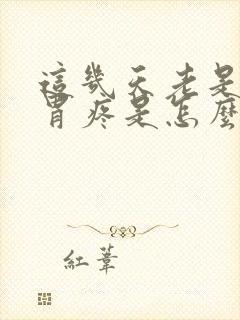 這幾天老是
胃疼是怎麼
紅葦